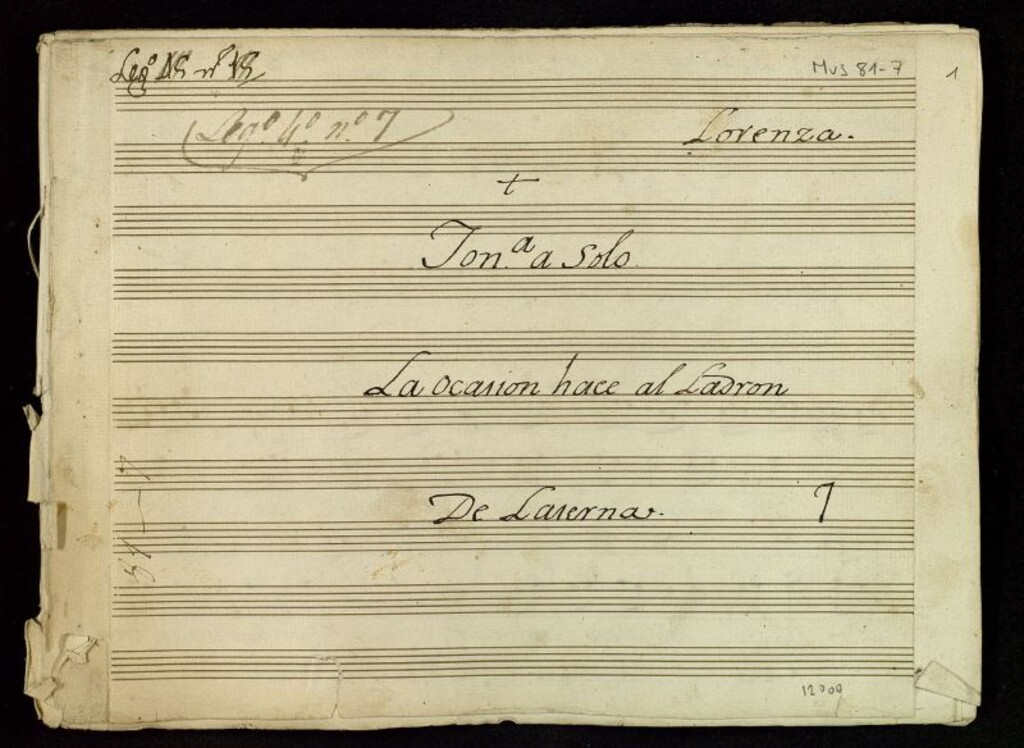 Leg.º
Mus 81-7
1
Leg.º 4.º n.º 7
Lorenza.
+
Ton.ª a Solo.
La ocasion hace al Ladron
De Laserna.
7
81-7
12000